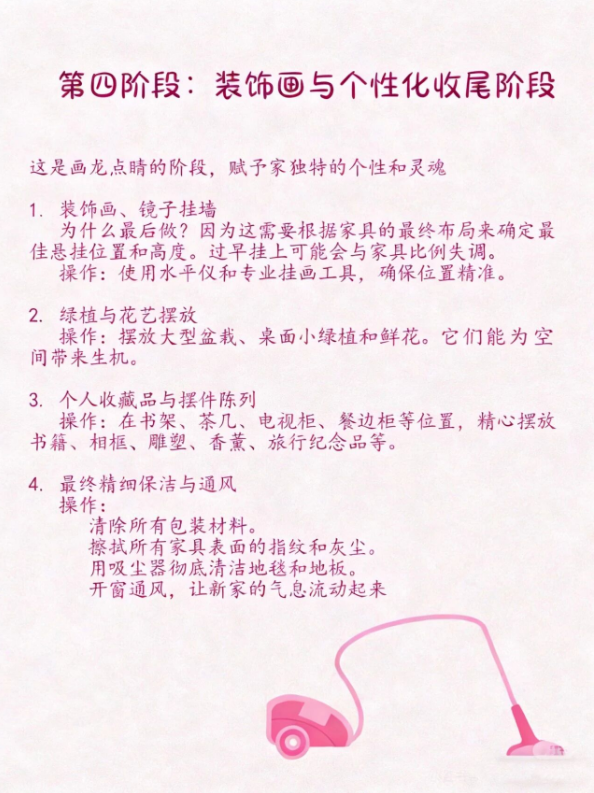 第四阶段：装饰画与个性化收尾阶段
这是画龙点睛的阶段，赋予家独特的个性和灵魂
1. 装饰画、镜子挂墙
为什么最后做？因为这需要根据家具的最终布局来确定最
佳悬挂位置和高度。过早挂上可能会与家具比例失调。
操作：使用水平仪和专业挂画工具，确保位置精准。
2. 绿植与花艺摆放
操作：摆放大型盆栽、桌面小绿植和鲜花。它们能为空
间带来生机。
3. 个人收藏品与摆件陈列
操作：在书架、茶几、电视柜、餐边柜等位置，精心摆放
书籍、相框、雕塑、香薰、旅行纪念品等。
4. 最终精细保洁与通风
操作：
清除所有包装材料。
擦拭所有家具表面的指纹和灰尘。
用吸尘器彻底清洁地毯和地板。
开窗通风，让新家的气息流动起来